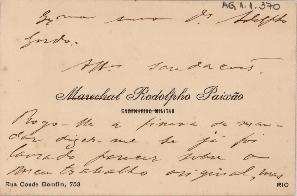 AG.1.1.370
Exmo snr Dr. Adolpho
Gordo.
Affos saudações.
Marechal Rodolpho Paixão
ENGENHEIRO MILITAR
Rogo-lhe a fineza de man-
dar dizer-me se já foi
lavrado parecer sobre o
meu trabalho original, mas
Rua Conde Bomfim, 753 RIO